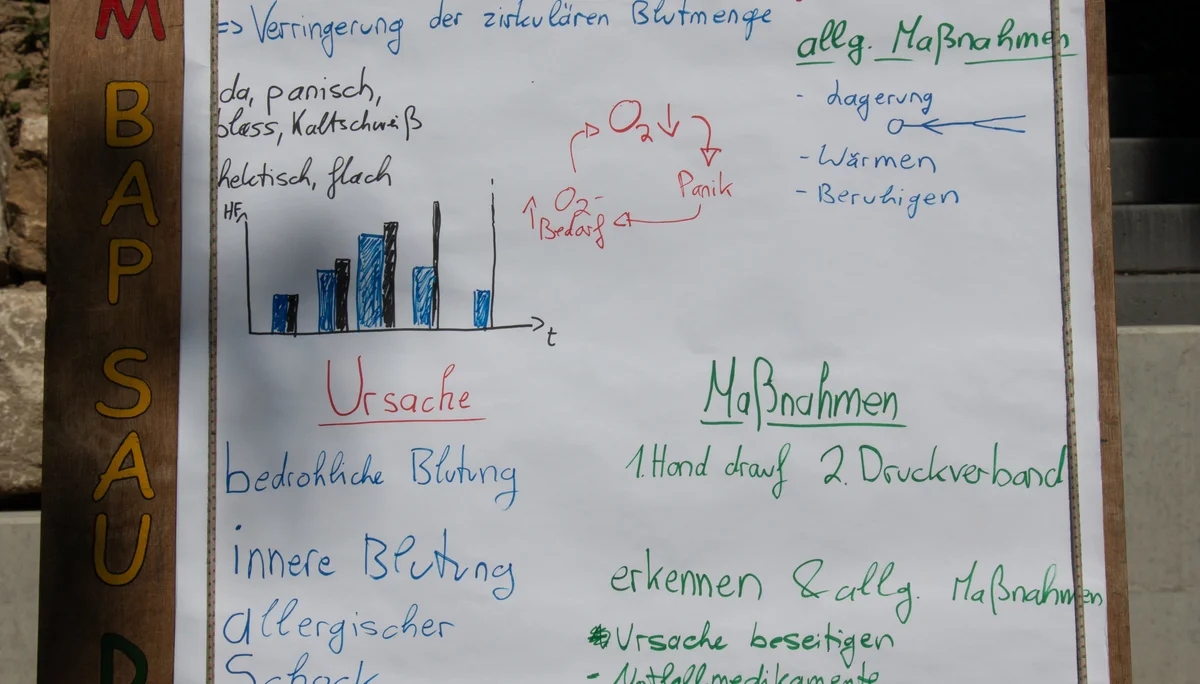 M
B
A
P
S
A
U
D
=> Verringerung der zirkulären Blutmenge
da, panisch,
blass, Kaltschweiß
hektisch, flach
HF
t
O₂ ↓
Panik
↑ O₂-
Bedarf
allg. Maßnahmen
- Lagerung
- Wärmen
- Beruhigen
Ursache
Maßnahmen
bedrohliche Blutung
1. Hand drauf 2. Druckverband
innere Blutung
erkennen & allg. Maßnahmen
allergischer
Schock
Ursache beseitigen
- Notfallmedikamente